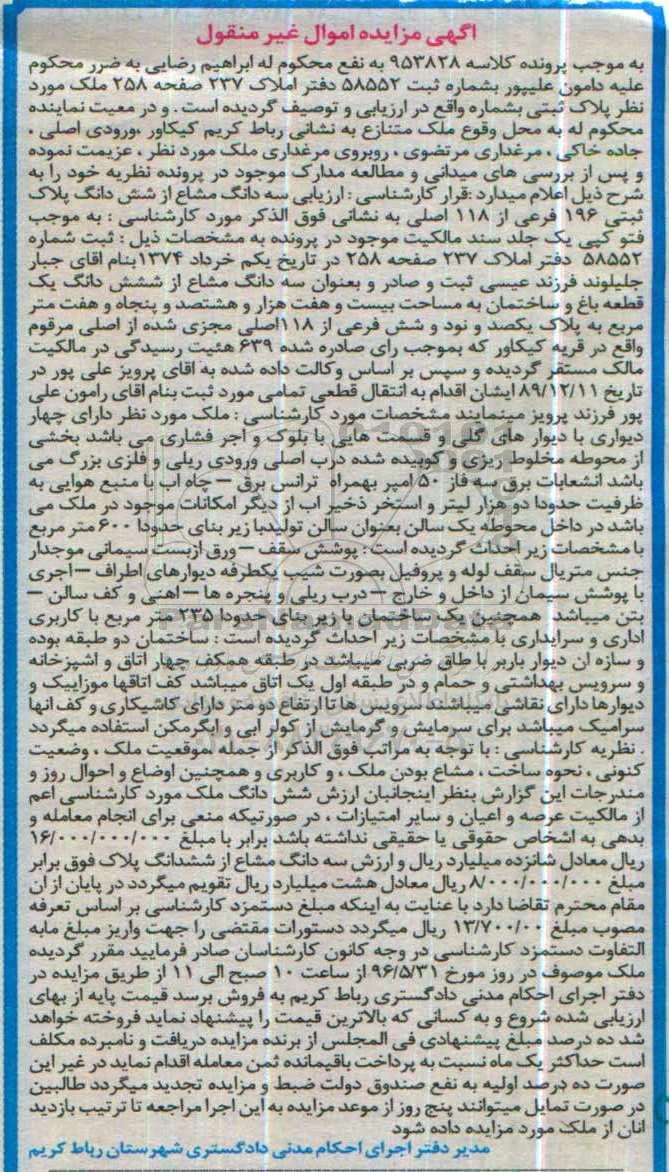 اگهی مزایده اموال غیر منقول
به موجب پرونده کلاسه ۹۵۳۸۲۸ به نفع محکوم له ابراهیم رضایی به ضرر محکوم
علیه دامون علیپور بشماره ثبت ۵۸۵۵۲ دفتر املاک ۲۳۷ صفحه ۲۵۸ ملک مورد
نظر پلاک ثبتی بشماره واقع در ارزیابی و توصیف گردیده است . و در معیت نماینده
محکوم له به محل وقوع ملک متنازع به نشانی رباط کریم کیکاور ،ورودی اصلی ،
جاده خاکی ، مرغداری مرتضوی ، روبروی مرغداری ملک مورد نظر ، عزیمت نموده
و پس از بررسی های میدانی و مطالعه مدارک موجود در پرونده نظریه خود را به
شرح ذیل اعلام میدارد :قرار کارشناسی : ارزیابی سه دانگ مشاع از شش دانگ پلاک
ثبتی ۱۹۶ فرعی از ۱۱۸ اصلی به نشانی فوق الذکر مورد کارشناسی : به موجب
فتو کپی یک جلد سند مالکیت موجود در پرونده به مشخصات ذیل : ثبت شماره
۵۸۵۵۲ دفتر املاک ۲۳۷ صفحه ۲۵۸ در تاریخ یکم خرداد ۱۳۷۴بنام اقای جبار
جلیلوند فرزند عیسی ثبت و صادر و بعنوان سه دانگ مشاع از ششش دانگ یک
قطعه باغ و ساختمان به مساحت بیست و هفت هزار و هشتصد و پنجاه و هفت متر
مربع به پلاک یکصد و نود و شش فرعی از ۱۱۸اصلی مجزی شده از اصلی مرقوم
واقع در قریه کیکاور که بموجب رای صادره شده ۶۳۹ هئیت رسیدگی در مالکیت
مالک مستقر گردیده و سپس بر اساس وکالت داده شده به اقای پرویز علی پور در
تاریخ ۸۹/۱۲/۱۱ ایشان اقدام به انتقال قطعی تمامی مورد ثبت بنام اقای رامون علی
پور فرزند پرویز مینمایند مشخصات مورد کارشناسی : ملک مورد نظر دارای چهار
دیواری با دیوار های گلی و قسمت هایی با بلوک و اجر فشاری می باشد بخشی
از محوطه مخلوط ریزی و کوبیده شده درب اصلی ورودی ریلی و فلزی بزرگ می
باشد انشعابات برق سه فاز ۵۰ امپر بهمراه ترانس برق – چاه اب با منبع هوایی به
ظرفیت حدودا دو هزار لیتر و استخر ذخیر اب از دیگر امکانات موجود در ملک می
باشد در داخل محوطه یک سالن بعنوان سالن تولیدبا زیر بنای حدودا ۶۰۰ متر مربع
با مشخصات زیر احداث گردیده است : پوشش سقف – ورق ازبست سیمانی موجدار
جنس متریال سقف لوله و پروفیل بصورت شیب یکطرفه دیوارهای اطراف – اجری
با پوشش سیمان از داخل و خارج – درب ریلی و پنجره ها – اهنی و کف سالن –
بتن میباشد . همچنین یک ساختمان با زیر بنای حدودا ۲۳۵ متر مربع با کاربری
اداری و سرایداری با مشخصات زیر احداث گردیده است : ساختمان دو طبقه بوده
و سازه ان دیوار باربر با طاق ضربی میباشد در طبقه همکف چهار اتاق و اشپزخانه
و سرویس بهداشتی و حمام و در طبقه اول یک اتاق میباشد کف اتاقها موزاییک و
دیوارها دارای نقاشی میباشند سرویس ها تا ارتفاع دو متر دارای کاشیکاری و کف انها
سرامیک میباشد برای سرمایش و گرمایش از کولر ابی و ابگرمکن استفاده میگردد
. نظریه کارشناسی : با توجه به مراتب فوق الذکر از جمله ،موقعیت ملک ، وضعیت
کنونی ، نحوه ساخت ، مشاع بودن ملک ، و کاربری و همچنین اوضاع و احوال روز و
مندرجات این گزارش بنظر اینجانبان ارزش شش دانگ ملک مورد کارشناسی اعم
از مالکیت عرصه و اعیان و سایر امتیازات ، در صورتیکه منعی برای انجام معامله و
بدهی به اشخاص حقوقی یا حقیقی نداشته باشد برابر با مبلغ ۱۶/۰۰۰/۰۰۰/۰۰۰
ریال معادل شانزده میلیارد ریال و ارزش سه دانگ مشاع از ششدانگ پلاک فوق برابر
مبلغ ۸/۰۰۰/۰۰۰/۰۰۰ ریال معادل هشت میلیارد ریال تقویم میگردد در پایان از ان
مقام محترم تقاضا دارد با عنایت به اینکه مبلغ دستمزد کارشناسی بر اساس تعرفه
مصوب مبلغ ۱۳/۷۰۰/۰۰ ریال میگردد دستورات مقتضی را جهت واریز مبلغ مابه
التفاوت دستمزد کارشناسی در وجه کانون کارشناسان صادر فرمایید مقرر گردیده
ملک موصوف در روز مورخ ۹۶/۵/۳۱ از ساعت ۱۰ صبح الی ۱۱ از طریق مزایده در
دفتر اجرای احکام مدنی دادگستری رباط کریم به فروش برسد قیمت پایه از بهای
ارزیابی شده شروع و به کسانی که بالاترین قیمت را پیشنهاد نماید فروخته خواهد
شد ده درصد مبلغ پیشنهادی فی المجلس از برنده مزایده دریافت و نامبرده مکلف
است حداکثر یک ماه نسبت به پرداخت باقیمانده ثمن معامله اقدام نماید در غیر این
صورت ده درصد اولیه به نفع صندوق دولت ضبط و مزایده تجدید میگردد طالبین
در صورت تمایل میتوانند پنج روز از موعد مزایده به این اجرا مراجعه تا ترتیب بازدید
انان از ملک مورد مزایده داده شود
مدیر دفتر اجرای احکام مدنی دادگستری شهرستان رباط کریم